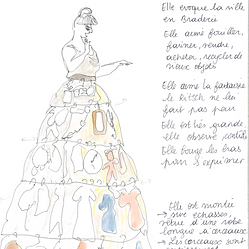 Elle évoque la ville
en Braderie
Elle aime fouiller,
fariner, vendre,
acheter, recycler de
vieux objets
Elle aime la fantaisie
le Kitsch ne lui
fait pas peur
Elle est très grande
elle observe
Elle bouge les bras
pour s'exprimer
Elle est montée
→ sur échasses,
vêtue d'une robe
longue à cerceaux
→ Les cerceaux sont